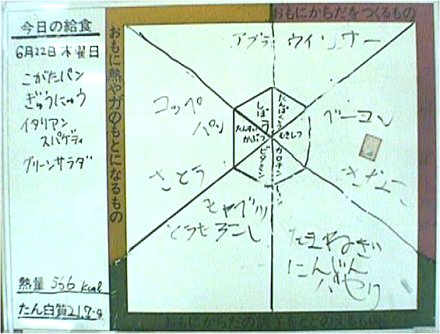 今日の給食
6月22日 木曜日
こがたパン
ぎゅうにゅう
イタリアン
スパゲティ
グリーンサラダ
熱量 556 kcal
たん白質 21.9g
おもに熱や力のもとになるもの
おもにからだをつくるもの
アブラ ウインナー
コッペ
パン
ベーコン
さとう
キャベツ
とうもろこし
たまねぎ
にんじん
パセリ
しぼう
たんぱくしつ
たんすい
かぶつ
むきしつ
ビタミン
カロチン